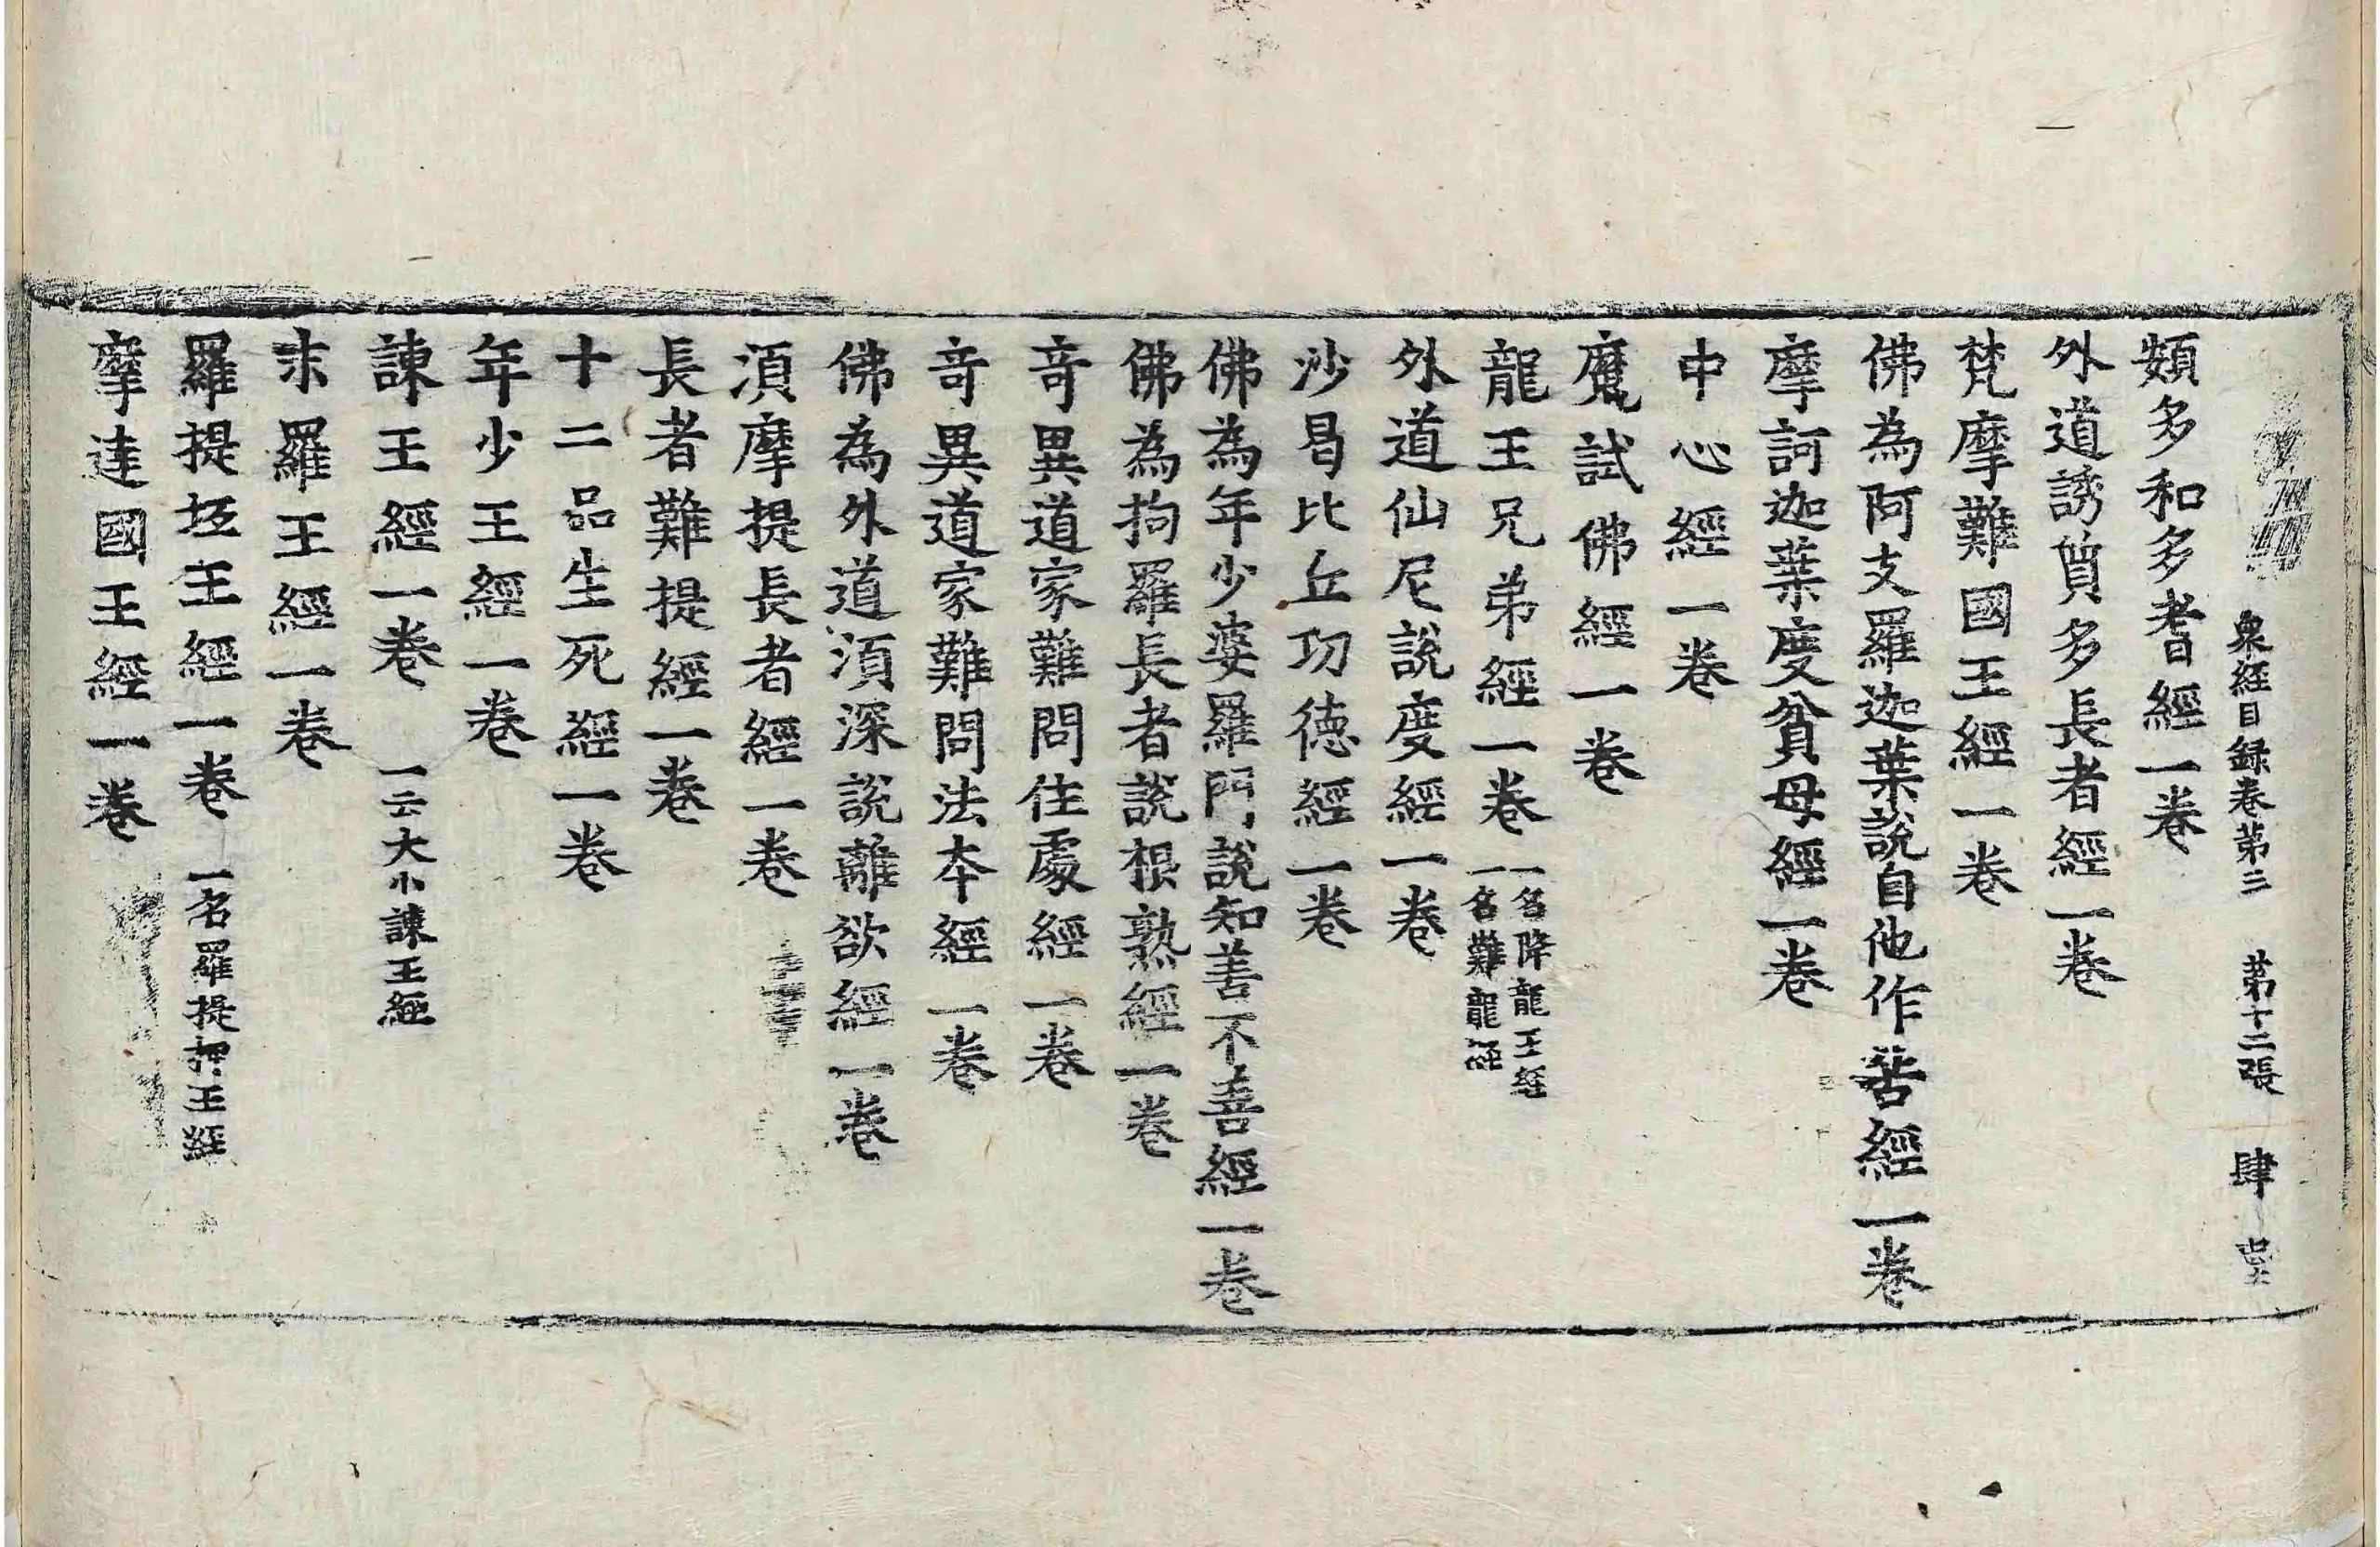 衆經目録卷第三　第十二張　肆
頞多和多耆經一卷
外道誘質多長者經一卷
梵摩難國王經一卷
佛為阿支羅迦葉說自他作苦經一卷
摩訶迦葉度貧母經一卷
中心經一卷
魔試佛經一卷
龍王兄弟經一卷 一名降龍王經 一名難龍經
外道仙尼說度經一卷
沙曷比丘功德經一卷
佛為年少婆羅門說知善不善經一卷
佛為拘羅長者說根熟經一卷
竒異道家難問住處經一卷
竒異道家難問法本經一卷
佛為外道湏深說離欲經一卷
湏摩提長者經一卷
長者難提經一卷
十二品生死經一卷
年少王經一卷
諫王經一卷 一云大小諫王經
末羅王經一卷
羅提坻王經一卷 一名羅提押王經
摩達國王經一卷